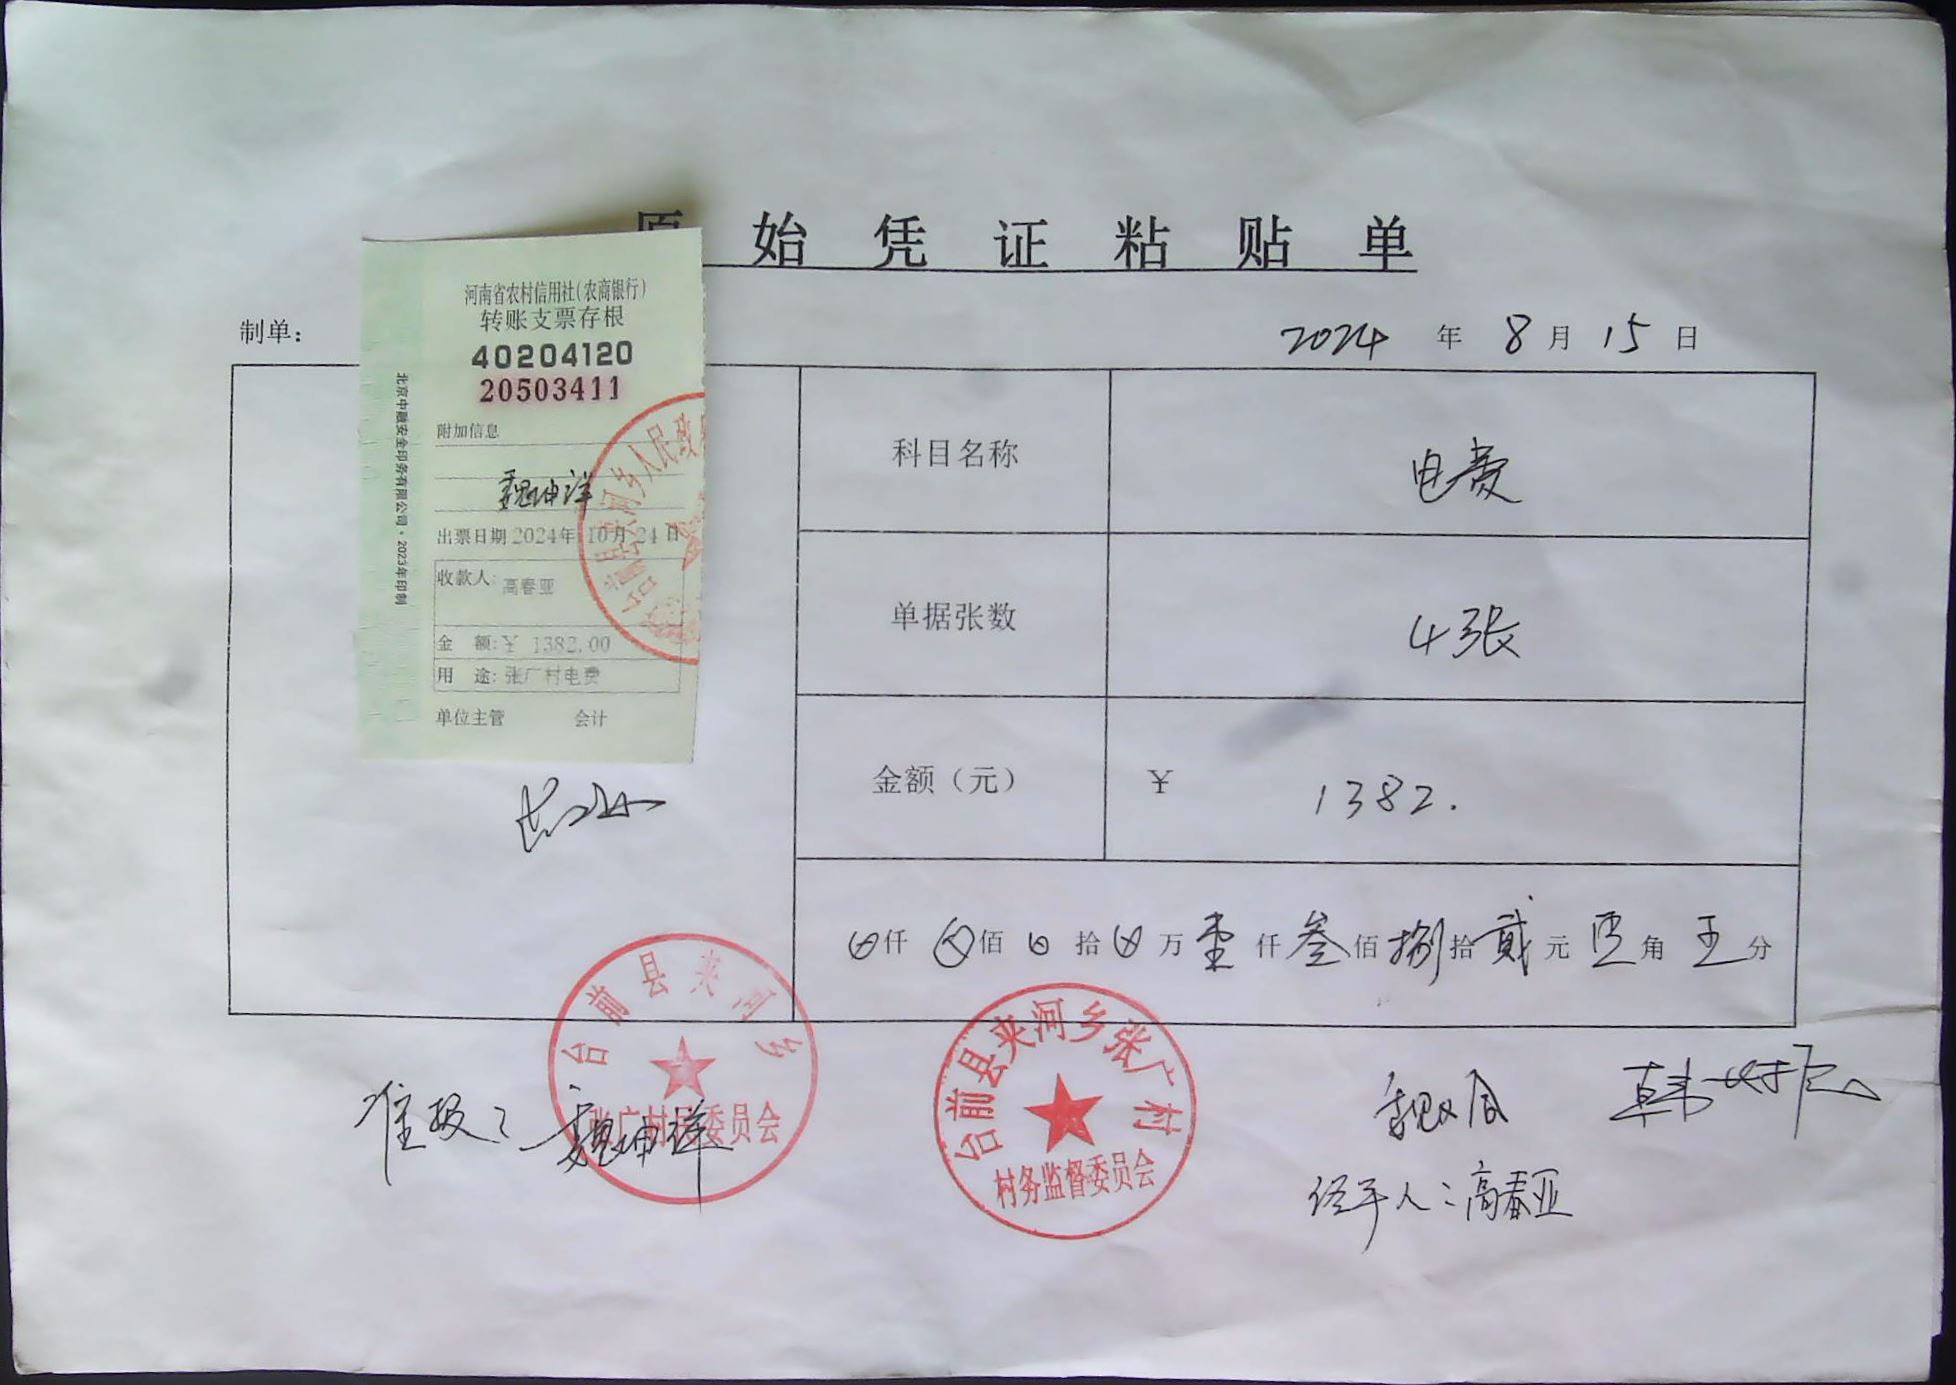 原始凭证粘贴单
制单：
2024 年 8 月 15 日
河南省农村信用社(农商银行)
转账支票存根
40204120
20503411
附加信息
魏坤祥
出票日期 2024年 10月 24 日
收款人: 高春亚
金 额:￥ 1382.00
用 途: 张广村电费
单位主管 会计
北京中融安全印务有限公司·2023年印制
台前县夹河乡人民政
科目名称 电费
单据张数 4张
金额（元） ￥ 1382.
仟 佰 拾 万 壹仟叁佰捌拾贰元 角 分
台前县夹河乡
张广村民委员会
准报 魏坤祥
台前县夹河乡张广村
村务监督委员会
经手人：高春亚